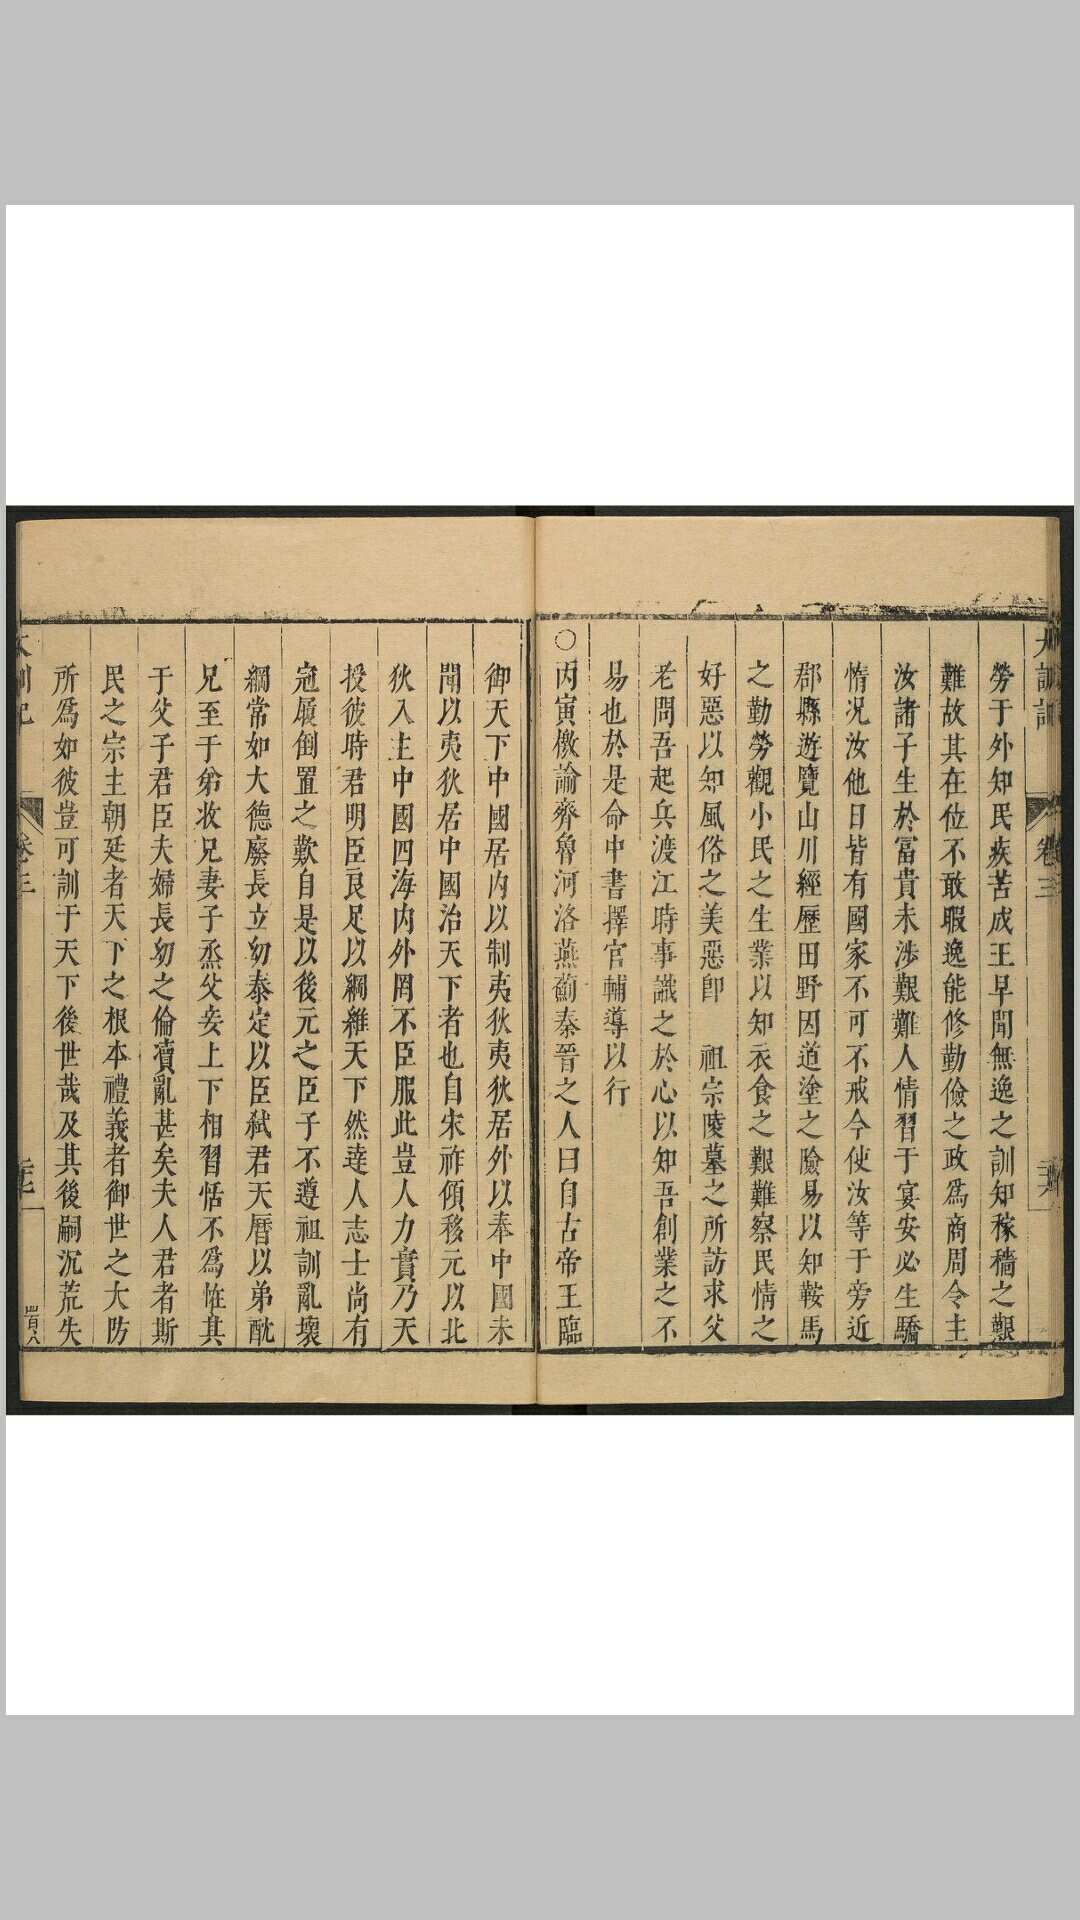 勞于外知民疾苦成王早聞無逸之訓知稼穡之艱
難故其在位不敢暇逸能修勤儉之政爲商周令主
汝諸子生於冨貴未涉艱難人情習于宴安必生驕
惰况汝他日皆有國家不可不戒今使汝等于旁近
郡縣遊覽山川經歷田野因道塗之險易以知鞍馬
之勤勞觀小民之生業以知衣食之艱難察民情之
好惡以知風俗之美惡卽 祖宗陵墓之所訪求父
老問吾起兵渡江時事識之於心以知吾創業之不
易也於是命中書擇官輔導以行
○丙寅檄諭齊魯河洛燕薊秦晉之人曰自古帝王臨
御天下中國居内以制夷狄夷狄居外以奉中國未
聞以夷狄居中國治天下者也自宋祚傾移元以北
狄入主中國四海内外罔不臣服此豈人力實乃天
授彼時君明臣良足以綱維天下然達人志士尚有
冠履倒置之歎自是以後元之臣子不遵祖訓亂壞
綱常如大德廢長立幼泰定以臣弑君天曆以弟酖
兄至于弟收兄妻子烝父妾上下相習恬不爲恠其
于父子君臣夫婦長幼之倫瀆亂甚矣夫人君者斯
民之宗主朝廷者天下之根本禮義者御世之大防
所爲如彼豈可訓于天下後世哉及其後嗣沉荒失
卷三